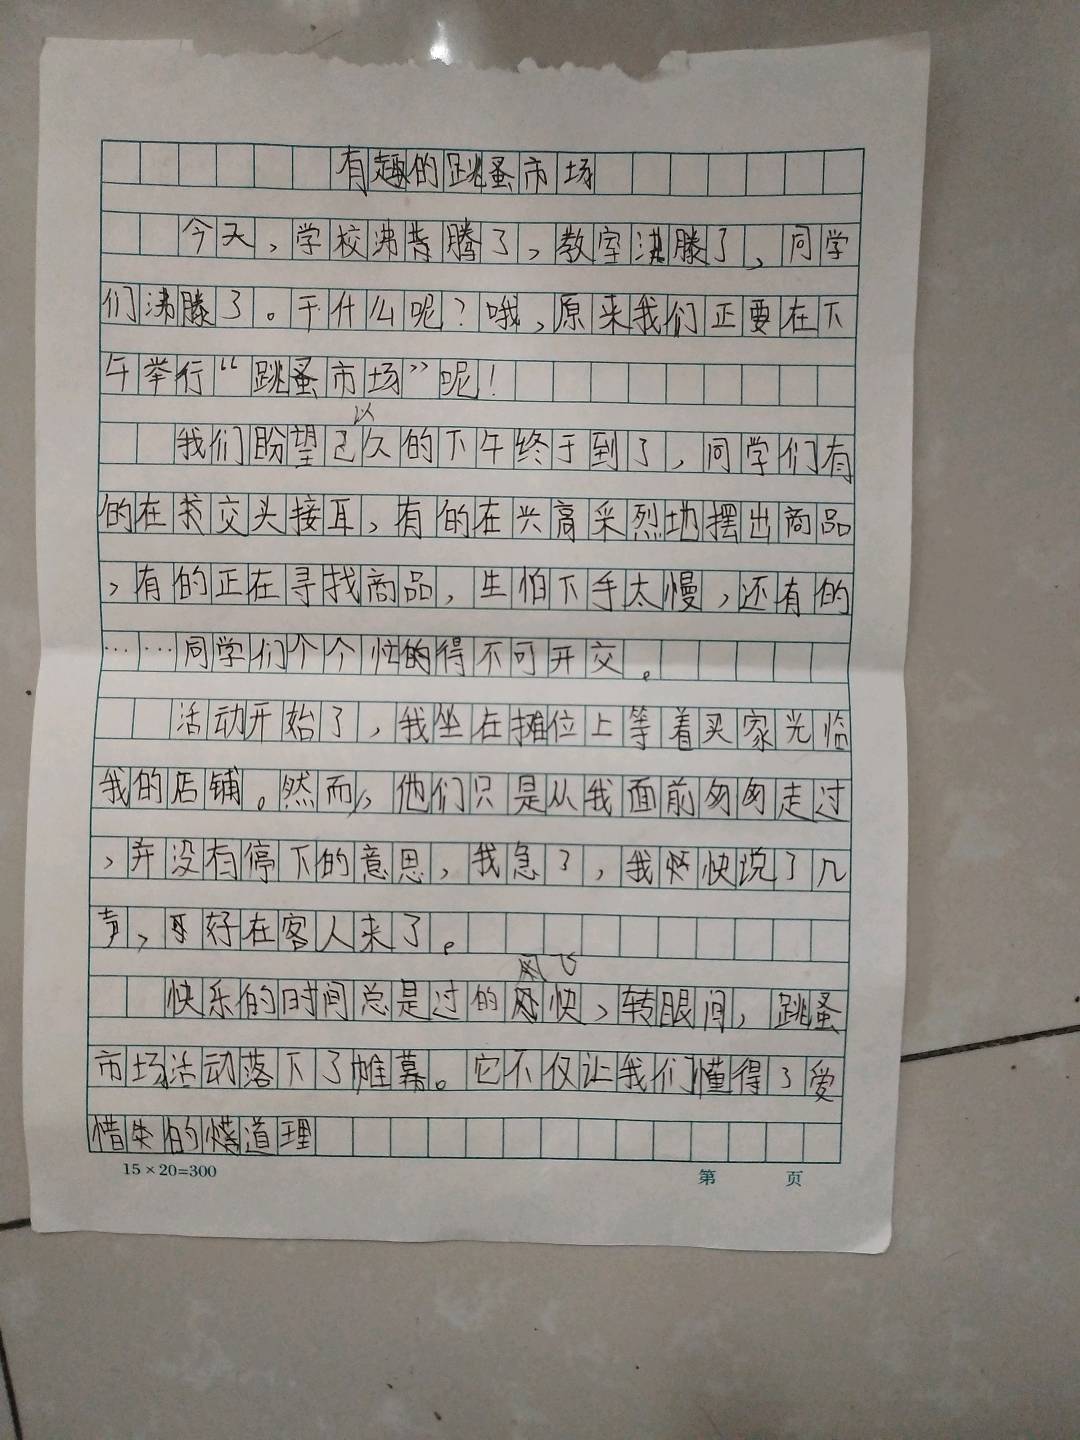 有趣的跳蚤市场
今天,学校沸腾了,教室沸腾了,同学
们沸腾了。干什么呢?哦,原来我们正要在下
午举行“跳蚤市场”呢!
以
我们盼望已久的下午终于到了,同学们有
的在交头接耳,有的在兴高采烈地摆出商品
,有的正在寻找商品,生怕下手太慢,还有的
……同学们个个忙的得不可开交。
活动开始了,我坐在摊位上等着买家光临
我的店铺。然而,他们只是从我面前匆匆走过
,弃没有停下的意思,我急了,我快说了几
声,好在客人来了。
风飞
快乐的时间总是过的快,转眼间,跳蚤
市场活动落下了帷幕。它不仅让我们懂得了爱
惜的道理
15×20=300
第 页